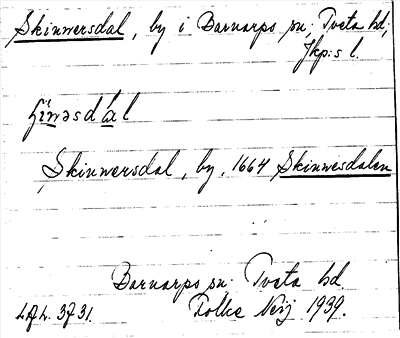 Skinnersdal, by i Barnarps sn, Tveta hd,
Jkp:s l.
Skinnersdal, by, 1664 Skinnesdalen
Barnarps sn. Tveta hd
Folke Neij 1939.